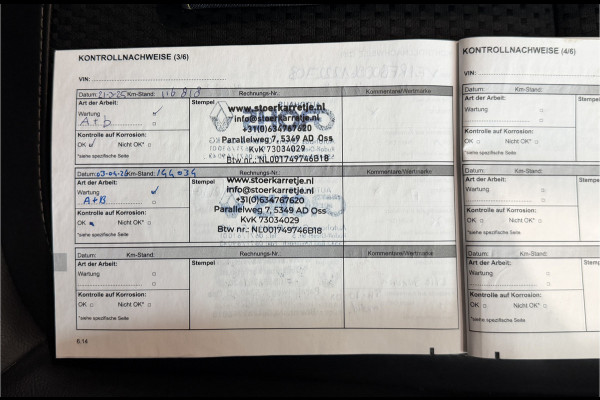 KONTROLLNACHWEISE (3/6)
VIN:
Datum: 21-3-25 Km-Stand: Rechnungs-Nr.: Kommentare/Wertmarke
Art der Arbeit: Stempel
Wartung
A+b
Kontrolle auf Korrosion:
OK Nicht OK*
*siehe spezifische Seite
www.stoerkarretje.nl
info@stoerkarretje.nl
+31(0)634767620
Parallelweg 7, 5349 AD Oss
KvK 73034029
Btw nr.: NL001749746B18
Datum: 03-04-26 Km-Stand: 144034 Rechnungs-Nr.: Kommentare/Wertmarke
Art der Arbeit: Stempel
Wartung
A+B
Kontrolle auf Korrosion:
OK Nicht OK*
*siehe spezifische Seite
www.stoerkarretje.nl
info@stoerkarretje.nl
+31(0)634767620
Parallelweg 7, 5349 AD Oss
KvK 73034029
Btw nr.: NL001749746B18
Datum: Km-Stand: Rechnungs-Nr.: Kommentare/Wertmarke
Art der Arbeit: Stempel
Wartung
Kontrolle auf Korrosion:
OK Nicht OK*
*siehe spezifische Seite
6.14
KONTROLLNACHWEISE (4/6)
VIN:
Datum: Km-Stand:
Art der Arbeit:
Wartung
Kontrolle auf Korrosion:
OK Nicht OK*
*siehe spezifische Seite
Datum: Km-Stand:
Art der Arbeit:
Wartung
Kontrolle auf Korrosion:
OK Nicht OK*
*siehe spezifische Seite
Datum: Km-Stand:
Art der Arbeit:
Wartung
Kontrolle auf Korrosion:
OK Nicht OK*
*siehe spezifische Seite